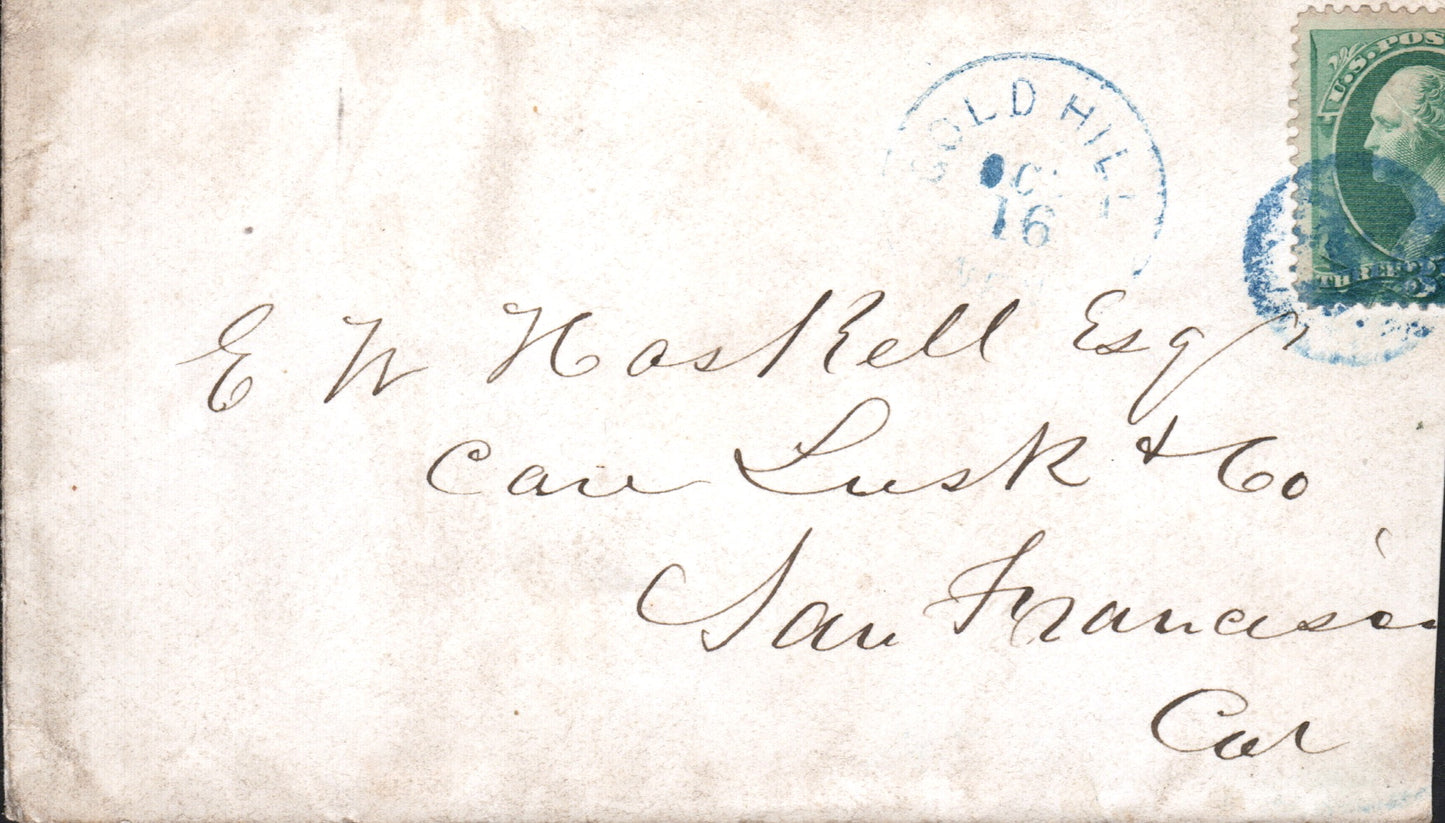 U.S. POS
THREE
GOLD HILL
OC
16
E W Haskell Esqr
Care Lusk & Co
San Francisco
Cal